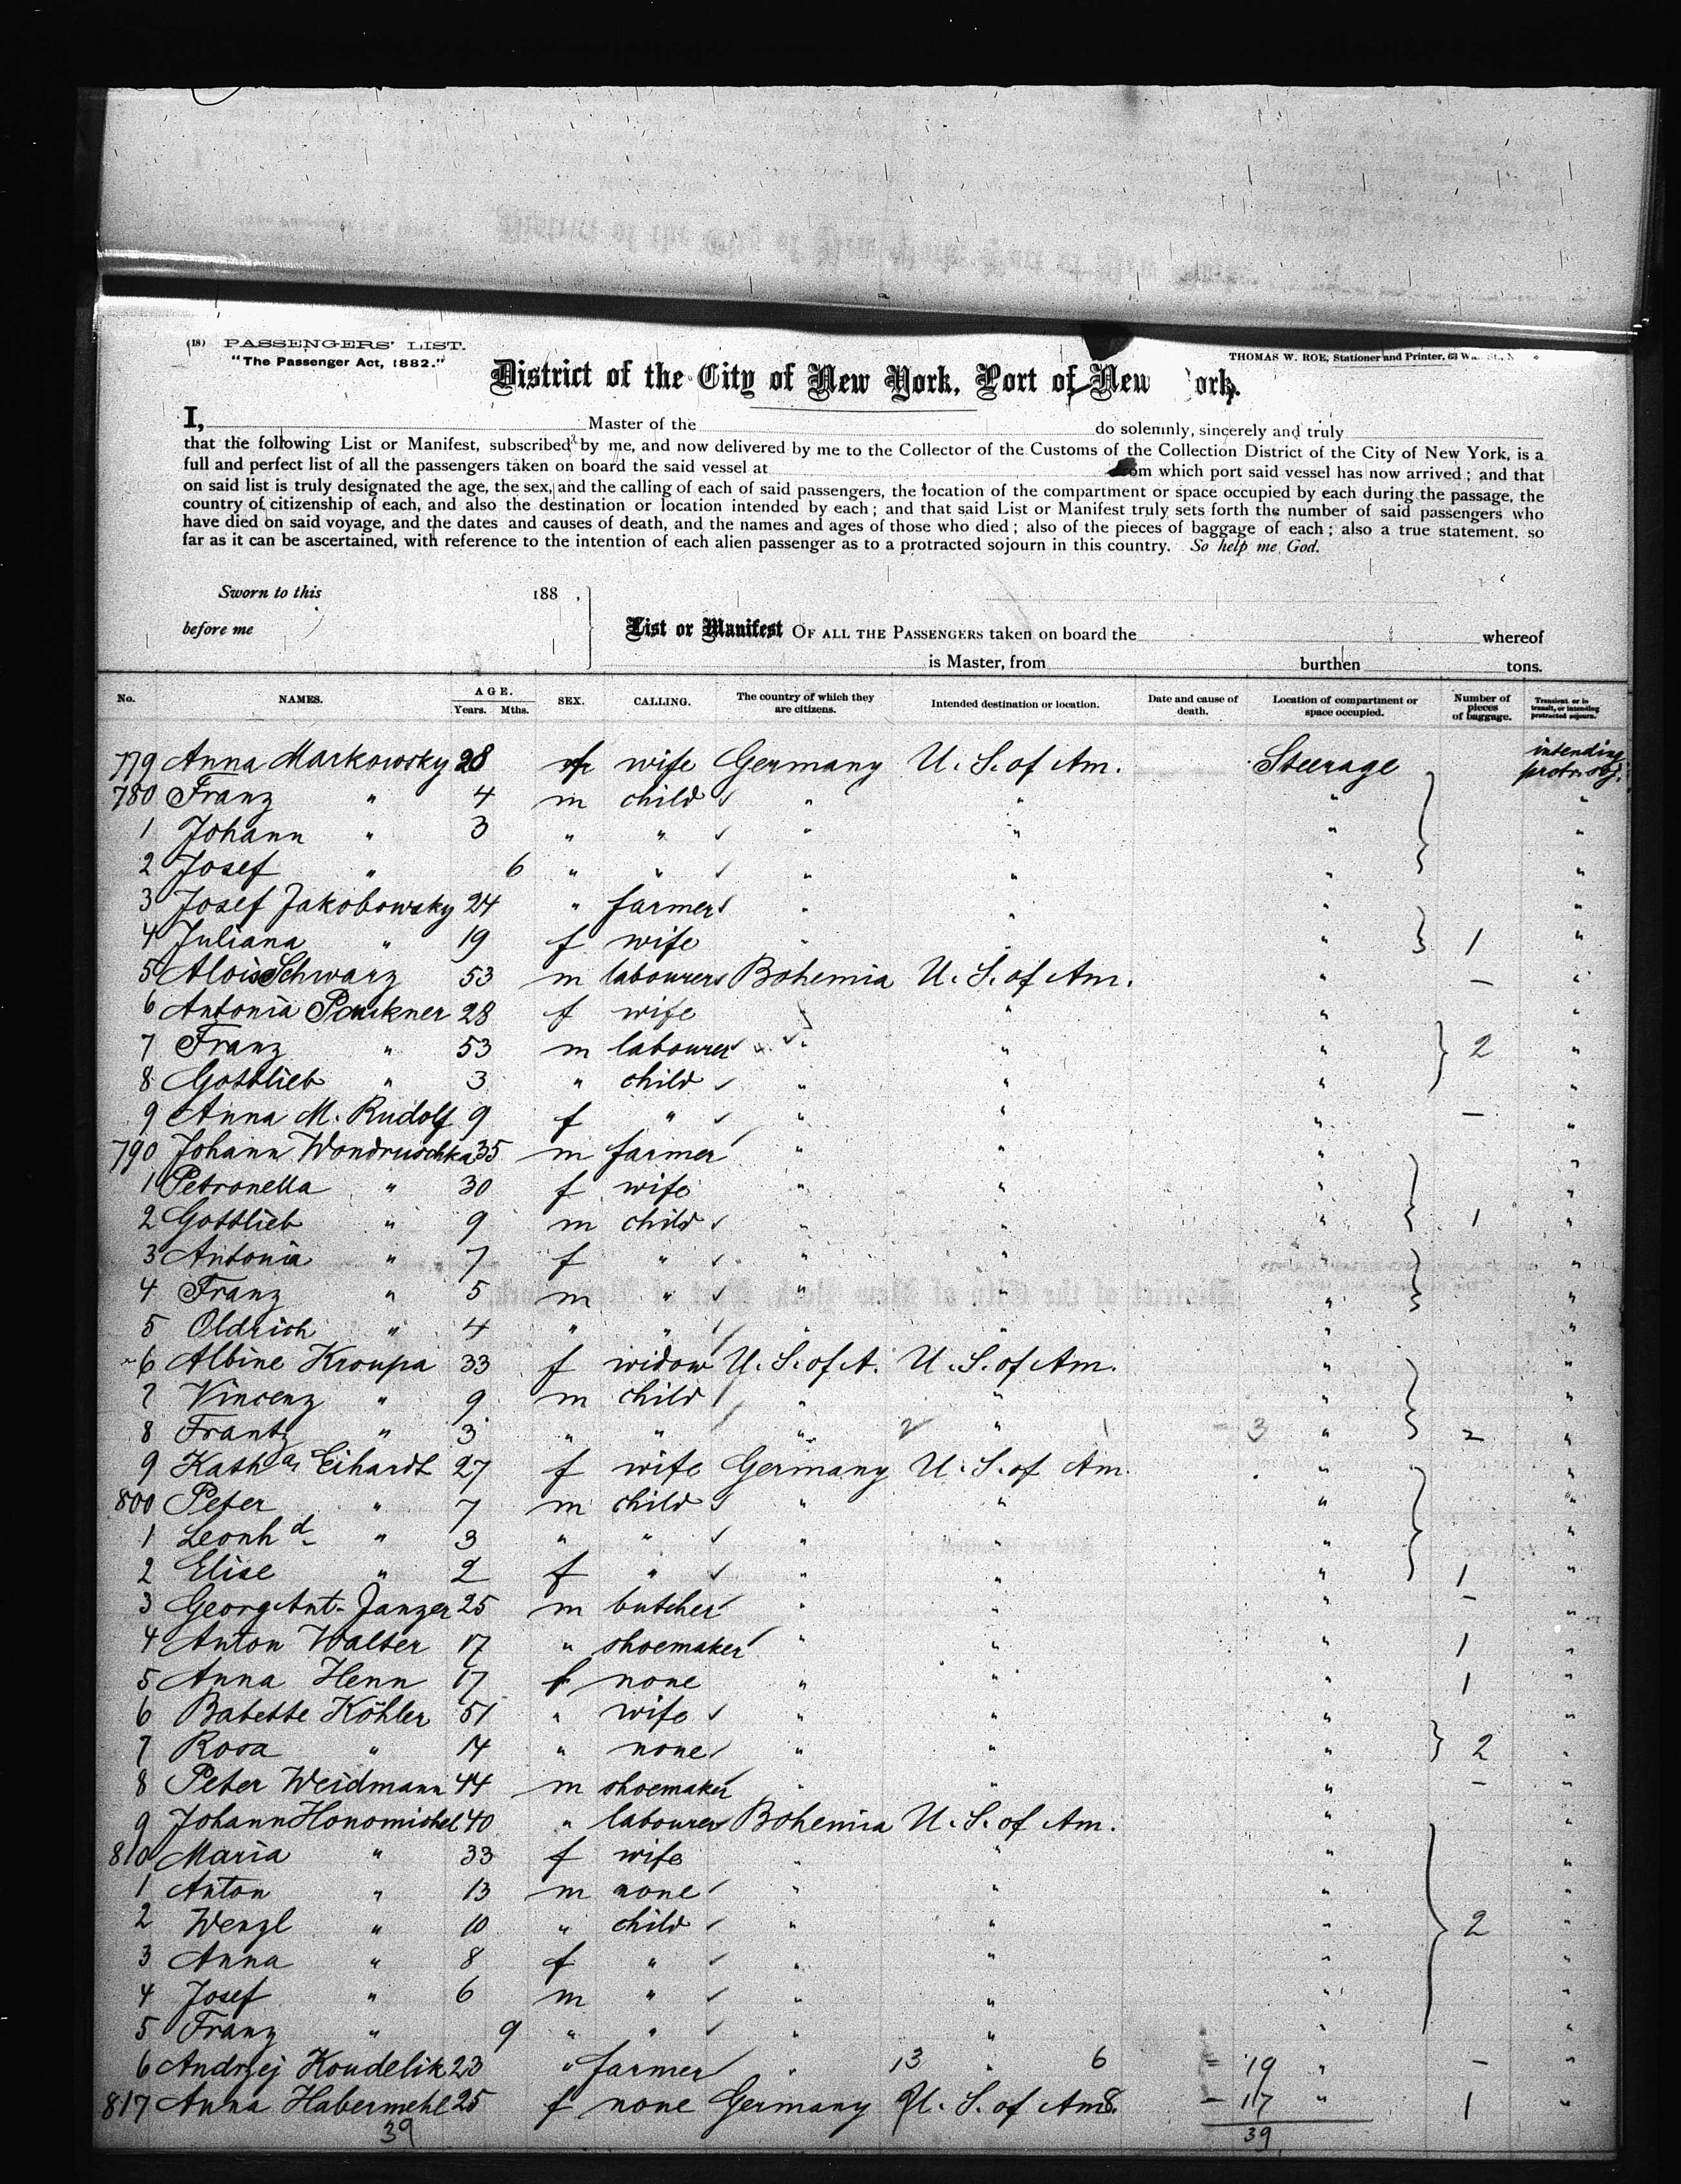 (18) PASSENGERS' LIST.
"The Passenger Act, 1882."
THOMAS W. ROE, Stationer and Printer, 63
District of the City of New York, Port of New ork.
I, Master of the do solemnly, sincerely and truly
that the following List or Manifest, subscribed by me, and now delivered by me to the Collector of the Customs of the Collection District of the City of New York, is a
full and perfect list of all the passengers taken on board the said vessel at from which port said vessel has now arrived; and that
on said list is truly designated the age, the sex, and the calling of each of said passengers, the location of the compartment or space occupied by each during the passage, the
country of citizenship of each, and also the destination or location intended by each; and that said List or Manifest truly sets forth the number of said passengers who
have died on said voyage, and the dates and causes of death, and the names and ages of those who died; also of the pieces of baggage of each; also a true statement, so
far as it can be ascertained, with reference to the intention of each alien passenger as to a protracted sojourn in this country. So help me God.
Sworn to this 188 ,
before me
List or Manifest OF ALL THE PASSENGERS taken on board the whereof
is Master, from burthen tons.
No. NAMES. AGE. Years. Mths. SEX. CALLING. The country of which they are citizens. Intended destination or location. Date and cause of death. Location of compartment or space occupied. Number of pieces of baggage. Transient or in transit, or intending protracted sojourn.
779 Anna Markowsky 28 f wife Germany U. S. of Am. Steerage intending protr. soj.
780 Franz " 4 m child " " " "
1 Johann " 3 " " " " " "
2 Josef " 6 " " " " " "
3 Josef Jakobowsky 24 " farmer " " " "
4 Juliana " 19 f wife " " " 1 "
5 Alois Schwarz 53 m labourer Bohemia U. S. of Am. " – "
6 Antonia Paukner 28 f wife " " " "
7 Franz " 53 m labourer " " " 2 "
8 Gottlieb " 3 " child " " " "
9 Anna M. Rudolf 9 f " " " " – "
790 Johann Wondruschka 35 m farmer " " " "
1 Petronella " 30 f wife " " " "
2 Gottlieb " 9 m child " " " 1 "
3 Antonia " 7 f " " " " "
4 Franz " 5 m " " " " "
5 Oldrich " 4 " " " " " "
6 Albine Kroupa 33 f widow U. S. of A. U. S. of Am. " "
7 Vincenz " 9 m child " " " "
8 Frantz " 3 " " " 2 " 3 " 2 "
9 Kath a. Eihardt 27 f wife Germany U. S. of Am. " "
800 Peter " 7 m child " " " "
1 Leonh d. " 3 " " " " " "
2 Elise " 2 f " " " " 1 "
3 Georg Ant. Janzer 25 m butcher " " " – "
4 Anton Walter 17 " shoemaker " " " 1 "
5 Anna Henn 17 f none " " " 1 "
6 Babette Köhler 51 " wife " " " "
7 Rosa " 14 " none " " " 2 "
8 Peter Weidmann 44 m shoemaker " " " – "
9 Johann Honomichel 40 " labourer Bohemia U. S. of Am. " "
810 Maria " 33 f wife " " " "
1 Anton " 13 m none " " " "
2 Wenzl " 10 " child " " " 2 "
3 Anna " 8 f " " " " "
4 Josef " 6 m " " " " "
5 Franz " 9 " " " " " "
6 Andrzej Koudelik 23 " farmer " 13 " 6 = 19 " – "
817 Anna Habermehl 25 f none Germany 9 U. S. of Am. 8 – 17 " 1 "
39 39